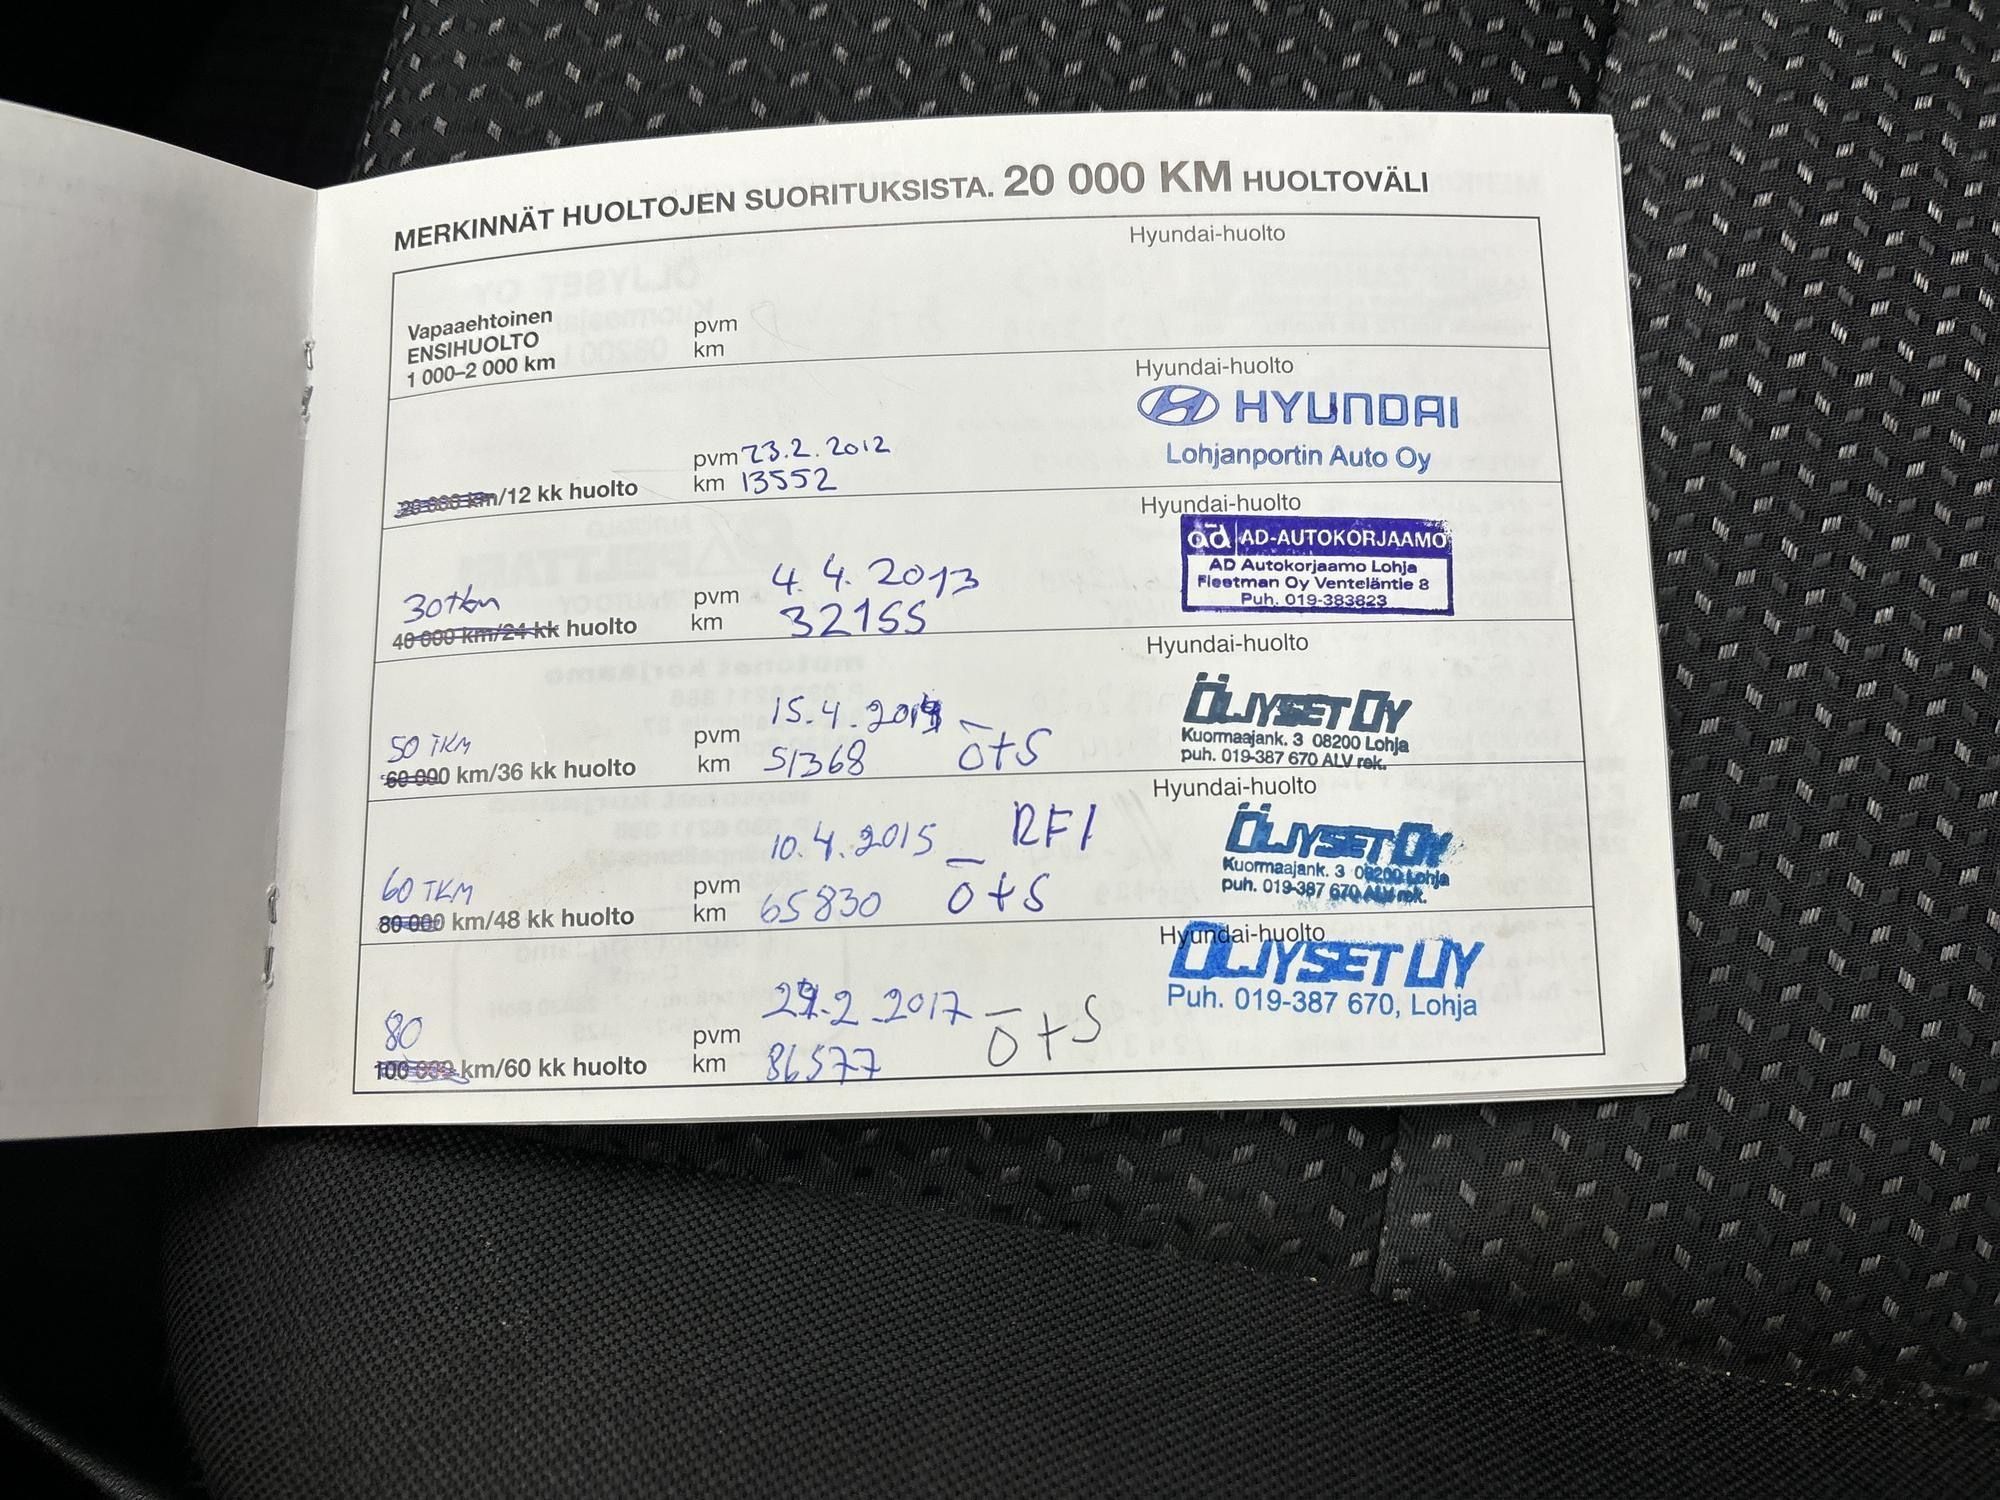 MERKINNÄT HUOLTOJEN SUORITUKSISTA. 20 000 KM HUOLTOVÄLI
Hyundai-huolto
Vapaaehtoinen
ENSIHUOLTO
1 000–2 000 km
pvm
km
Hyundai-huolto
HYUNDAI
Lohjanportin Auto Oy
20 000 km/12 kk huolto
pvm 23.2.2012
km 13552
Hyundai-huolto
ad AD-AUTOKORJAAMO
AD Autokorjaamo Lohja
Fleetman Oy Venteläntie 8
Puh. 019-383823
30tkm
40 000 km/24 kk huolto
pvm 4.4.2013
km 32155
Hyundai-huolto
ÖLJYSET OY
Kuormaajank. 3 08200 Lohja
puh. 019-387 670 ALV rek.
50 TKM
60 000 km/36 kk huolto
pvm 15.4.2014
km 51368 ö+S
Hyundai-huolto
ÖLJYSET OY
Kuormaajank. 3 08200 Lohja
puh. 019-387 670 ALV rek.
60 TKM
80 000 km/48 kk huolto
pvm 10.4.2015
km 65830 ö+S
Hyundai-huolto
ÖLJYSET OY
Puh. 019-387 670, Lohja
80
100 000 km/60 kk huolto
pvm 2.2017
km 86577 ö+S